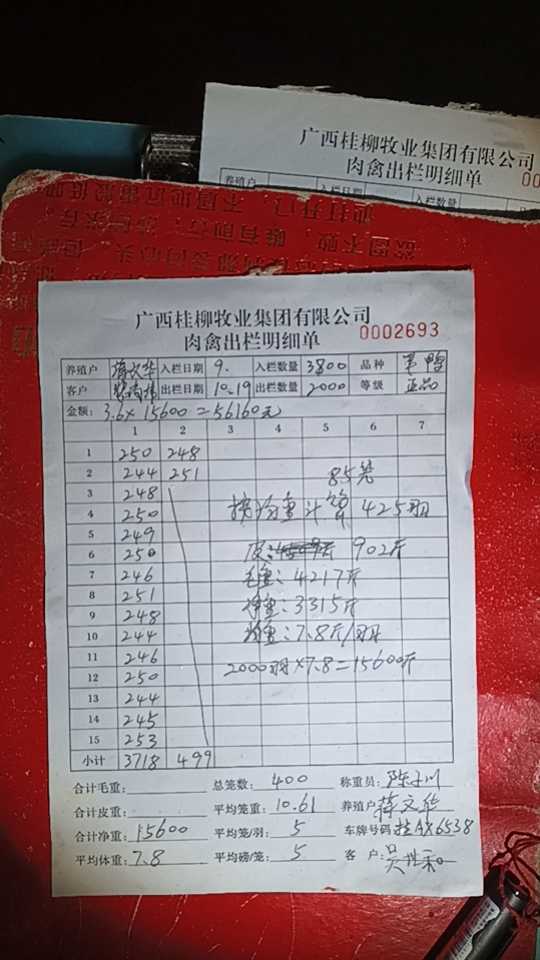 广西桂柳牧业集团有限公司
肉禽出栏明细单 00
养殖户 入栏日期 入栏数量
广西桂柳牧业集团有限公司
肉禽出栏明细单 0002693
养殖户 蒋文华 入栏日期 9. 入栏数量 3800 品种 鸭
客户 出栏日期 10.19 出栏数量 2000 等级 正品
金额: 3.6×15600=56160元
1 2 3 4 5 6 7
1 250 248
2 244 251 85笼
3 248
4 250 按均重计算 425羽
5 249
6 250 皮: 902斤
7 246 毛重:4217斤
8 251
9 248 净重:3315斤
10 244 均重:7.8斤/羽
11 246
12 250 2000羽×7.8=15600斤
13 244
14 245
15 253
小计 3718 499
合计毛重: 总笼数: 400 称重员:
合计皮重: 平均笼重: 10.61 养殖户 蒋文华
合计净重: 15600 平均笼/羽: 5 车牌号码 桂AX6538
平均体重: 7.8 平均磅/笼: 5 客户: